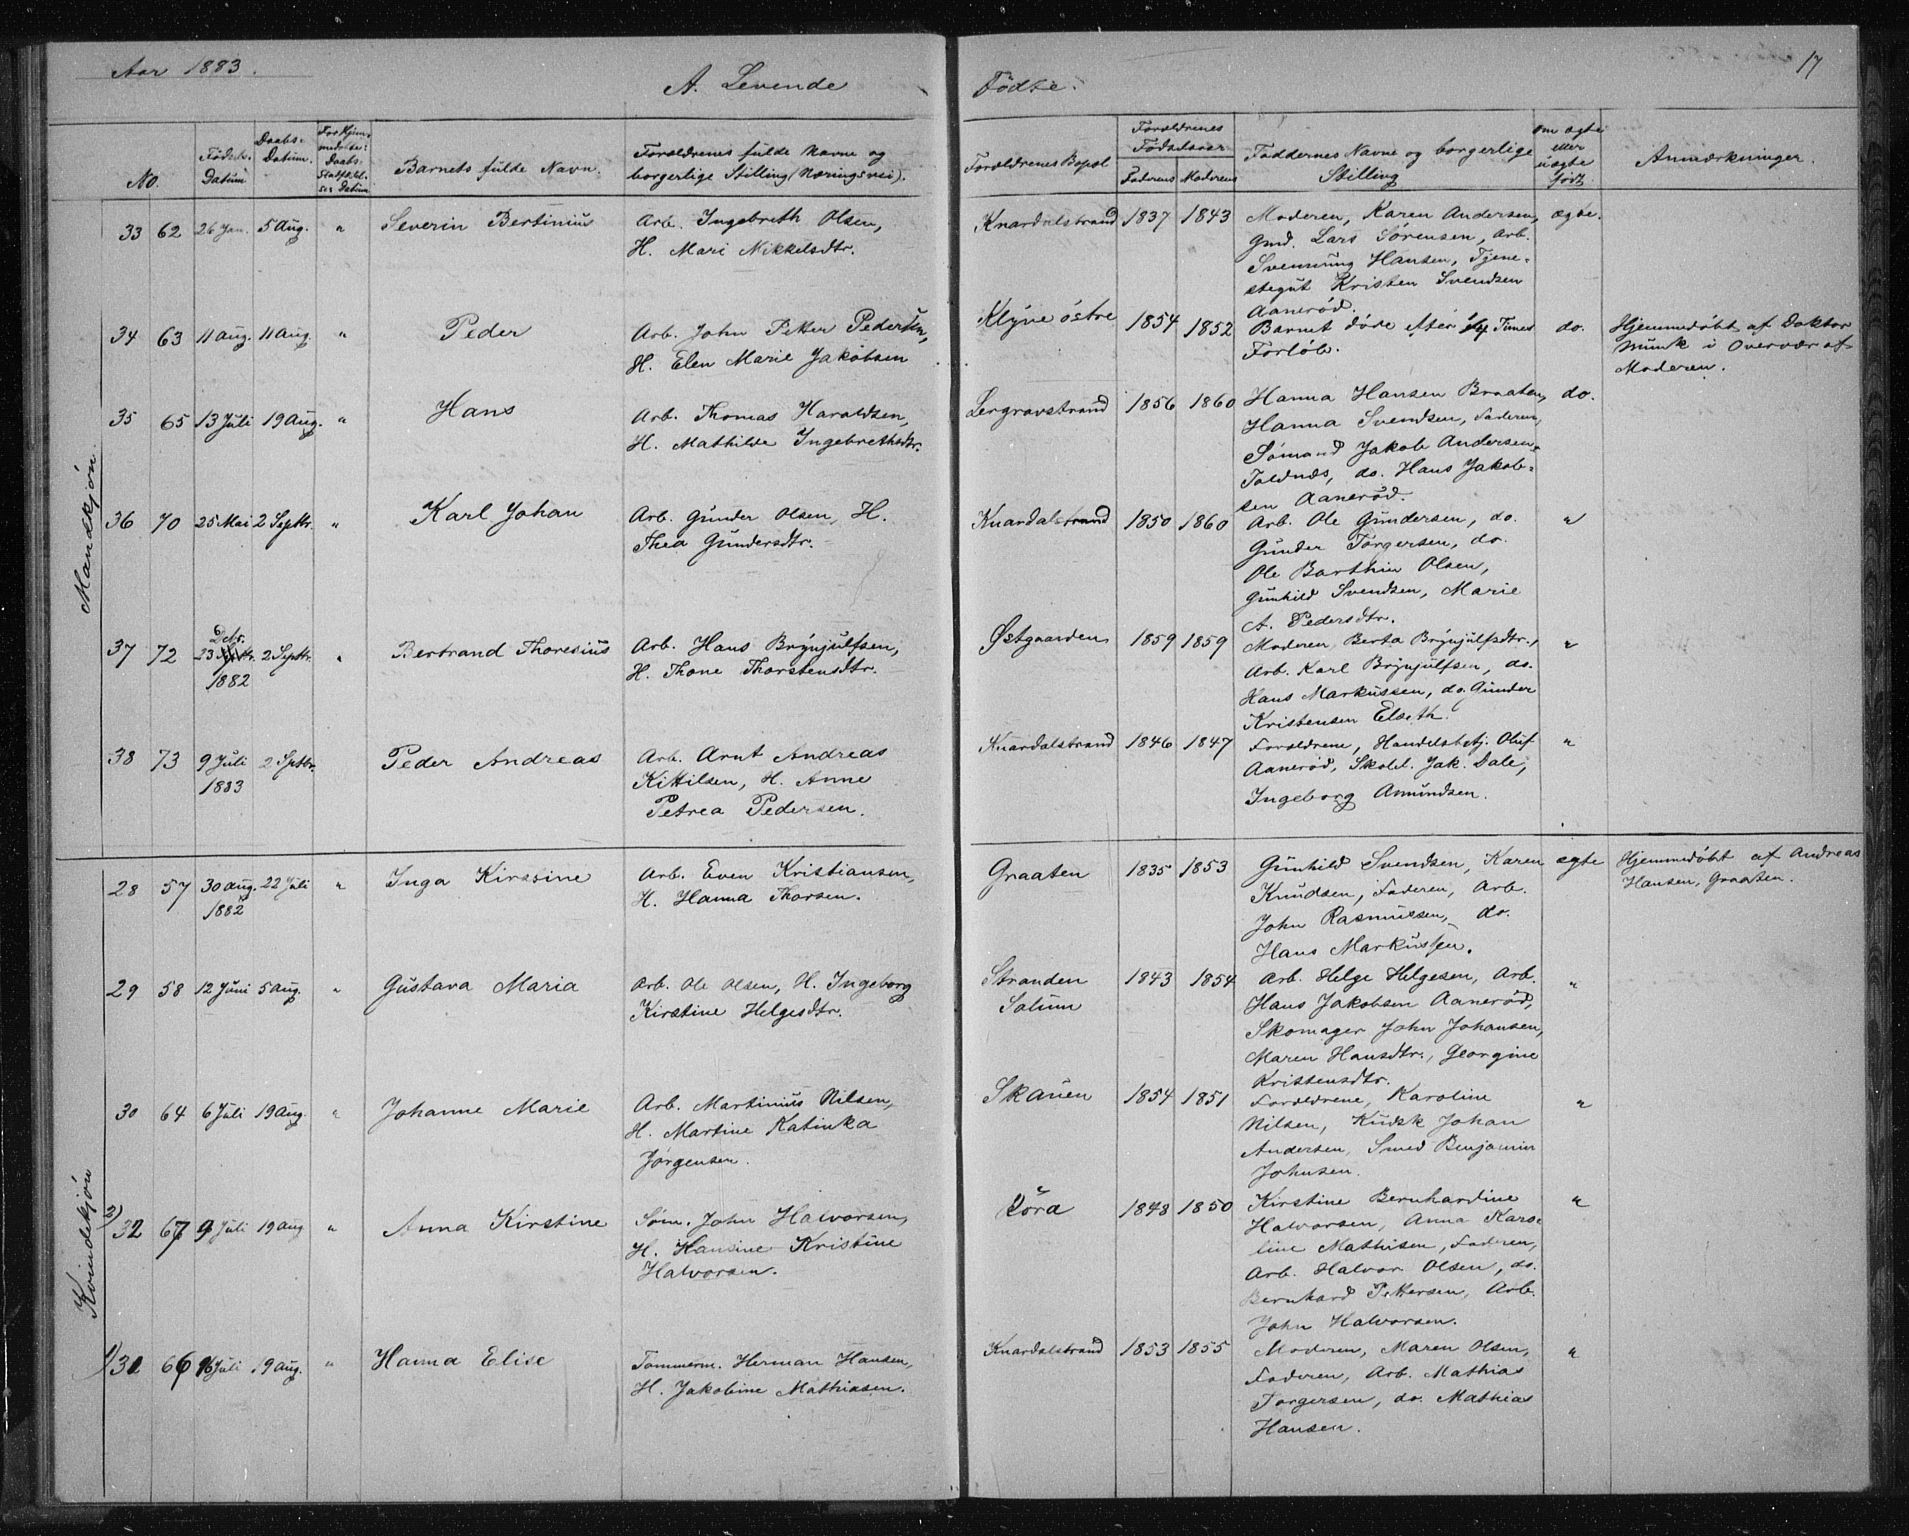 Aar 1883.
A. Levende Fødte.
17
No.
Fødsels-Datum
Daabs-Datum.
Barnets fulde Navn.
Forældrenes fulde Navne og borgerlige Stilling (Næringsvei).
Forældrenes Bopæl
Forældrenes Fødselsaar
Faderens
Moderens
Faddernes Navne og borgerlige Stilling
om ægte eller uægte født.
Anmærkninger.
Mandskjøn.
33 62 26 Jan. 5 Aug. " Severin Bertinius
Arb. Ingebreth Olsen,
H. Mari Nikkelsdtr.
Knardalstrand 1837 1843
Moderen, Karen Andersen,
Gmd. Lars Sørensen, Arb.
Svennung Hansen, Tjene-
stegut Kristen Svendsen
Aanerød.
ægte.
34 63 11 Aug. 11 Aug. " Peder
Arb. John Peter Pedersen,
H. Elen Marie Jakobsen
Klyve østre 1854 1852
Barnet døde efter Times
Forløb.
do.
Hjemmedøbt af Doktor
Munk i Overvær af
Moderen.
35 65 13 Juli 19 Aug. " Hans
Arb. Thomas Haraldsen,
H. Mathilde Ingebrethsdtr.
Lergravstrand 1856 1860
Hanna Hansen Braaten,
Hanna Svendsen, Faderen,
Sømand Jakob Andersen
Toldnæs, do. Hans Jakob-
sen Aanerød.
do.
36 70 25 Mai 2 Septbr. " Karl Johan
Arb. Gunder Olsen, H.
Thea Gundersdtr.
Knardalstrand 1850 1860
Arb. Ole Gundersen, do.
Gunder Torgersen, do.
Ole Barthin Olsen,
Gunhild Svendsen, Marie
A. Pedersdtr.
"
37 72 23 Dcbr. 1882 2 Septbr. " Bertrand Thoresius
Arb. Hans Brynjulfsen,
H. Thone Thorstensdtr.
Østgaarden 1859 1859
Moderen, Berta Brynjulfsdtr.,
Arb. Karl Brynjulfsen, do.
Hans Markussen, do. Gunder
Kristensen Elseth.
"
38 73 9 Juli 1883 2 Septbr. Peder Andreas
Arb. Arnt Andreas
Kittilsen, H. Anne
Petrea Pedersen.
Knardalstrand 1846 1847
Forældrene, Handelsbetj. Oluf
Aanerød, Skolel. Jak. Dale,
Ingeborg Amundsen.
"
Kvindekjøn
28 57 30 Aug. 1882 22 Juli " Inga Kirstine
Arb. Even Kristiansen,
H. Hanna Thorsen.
Graaten 1835 1853
Gunhild Svendsen, Karen
Knudsen, Faderen, Arb.
John Rasmussen, do.
Hans Markussen.
ægte
Hjemmedøbt af Andreas
Hansen, Graaten.
29 58 12 Juni 5 Aug. " Gustava Maria
Arb. Ole Olsen, H. Ingeborg
Kirstine Helgesdtr.
Stranden
Solum
1843 1854
Arb. Helge Helgesen, Arb.
Hans Jakobsen Aanerød,
Skomager John Johansen,
Maren Hansdtr., Georgine
Kristensdtr.
"
30 64 6 Juli 19 Aug. " Johanne Marie
Arb. Martinius Nilsen,
H. Martine Katinka
Jørgensen.
Skauen 1854 1851
Forældrene, Karoline
Nilsen, Kudsk Johan
Andersen, Smed Benjamin
Johnsen.
"
2) 32 67 9 Juli 19 Aug " Anna Kirstine
Søm. John Halvorsen,
H. Hansine Kristine
Halvorsen.
Røra 1848 1850
Kirstine Bernhardine
Halvorsen, Anna Karo-
line Mathisen, Faderen,
Arb. Halvor Olsen, do.
Bernhard Pettersen, Arb.
John Halvorsen.
"
1) 31 66 16 Juli 19 Aug. " Hanna Elise
Tømmerm. Herman Hansen,
H. Jakobine Mathiasen.
Knardalstrand 1853 1855
Moderen, Maren Olsen,
Faderen, Arb. Mathias
Torgersen, do. Mathias
Hansen.
"